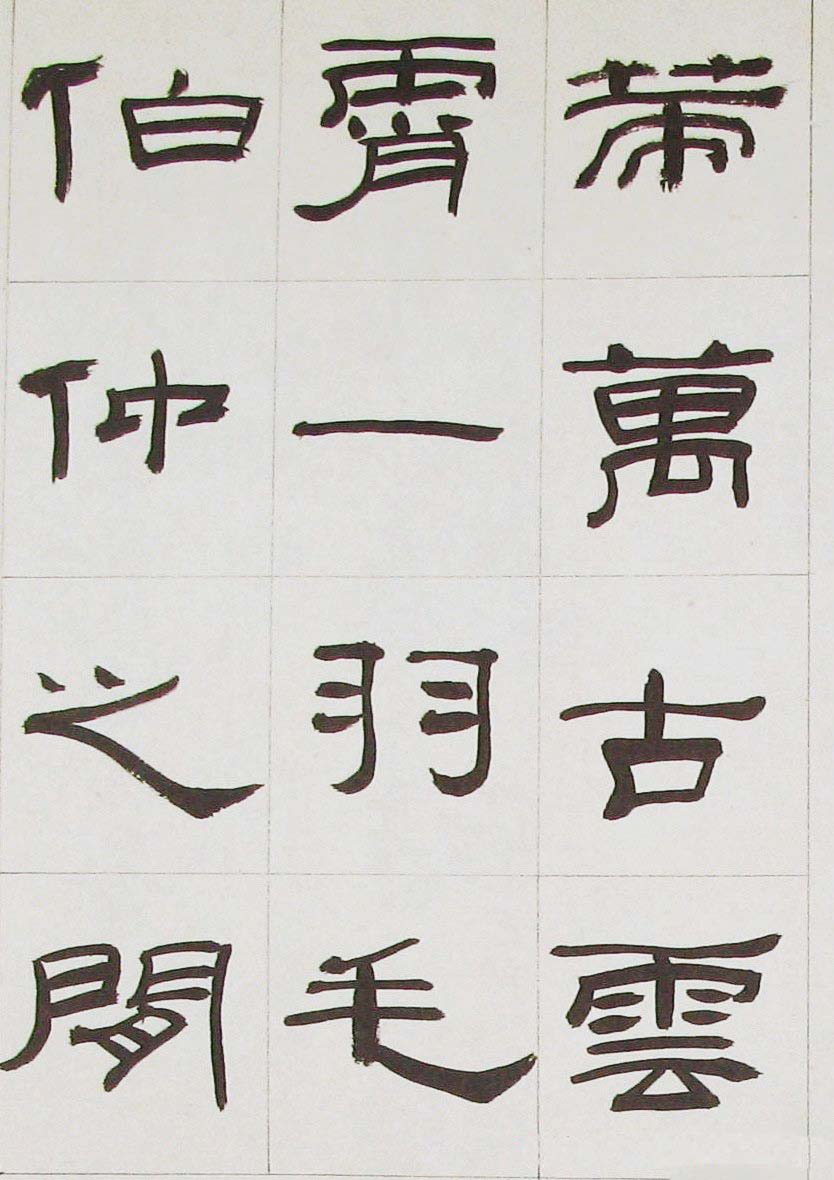 策萬古雲
霄一羽毛
伯仲之間